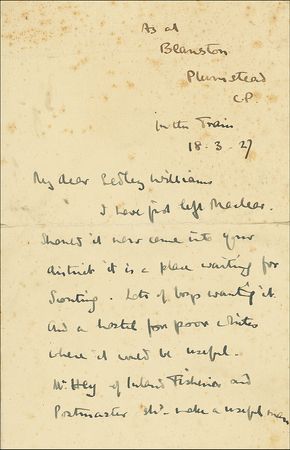 As at
Blanston
Plumstead
C.P.
In the Train
18.3.27
My dear Sedley Williams
I have just left Maclear.
Should it ever come into your
district it is a place waiting for
Scouting. Lots of boys wanting it.
And a hostel for poor whites
where it would be useful.
Mr Hey of Inland Fisheries and
Postmaster shd. make a useful man